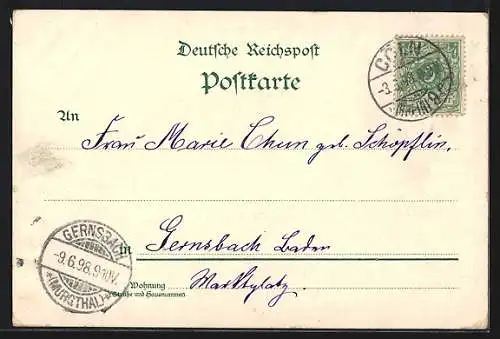 Deutsche Reichspost
Postkarte
An
Frau Marie Chun geb. Schöpflin.
in Gernsbach Baden
Wohnung
(Straße und Hausnummer)
Marktplatz
CÖLN
GERNSBACH
-9.6.98.9-10V.
*(MURGTHAL)*